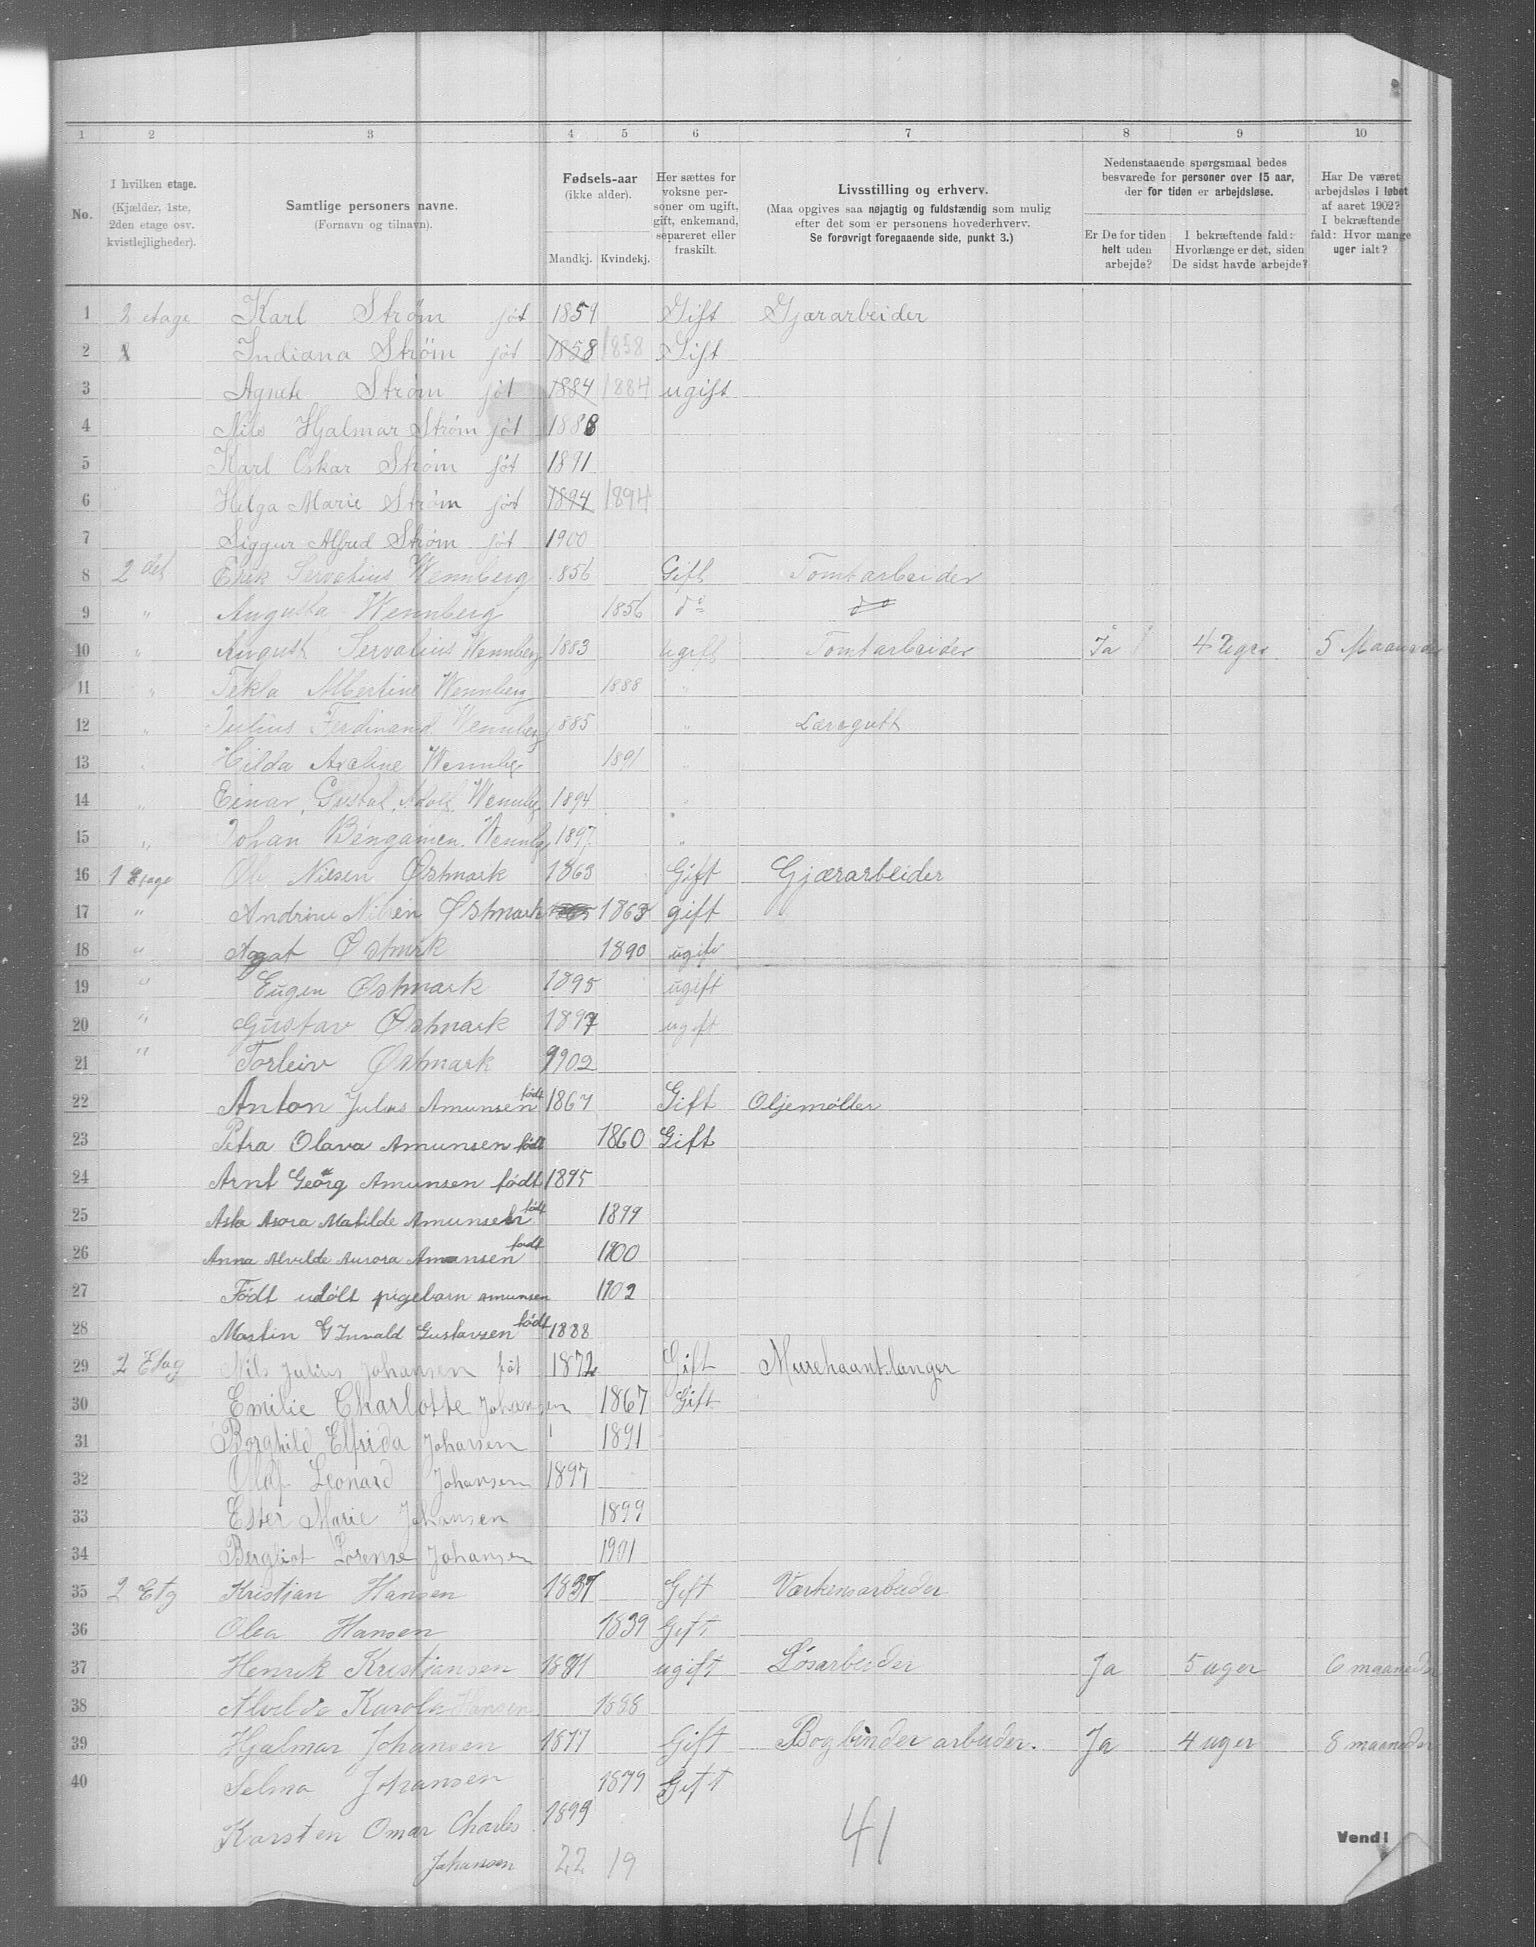 1 2 3 4 5 6 7 8 9 10
No.
I hvilken etage.
(Kjælder, 1ste,
2den etage osv.
kvistlejligheder).
Samtlige personers navne.
(Fornavn og tilnavn).
Fødsels-aar
(ikke alder).
Mandkj. Kvindekj.
Her sættes for
voksne per-
soner om ugift,
gift, enkemand,
separeret eller
fraskilt.
Livsstilling og erhverv.
(Maa opgives saa nøjagtig og fuldstændig som mulig
efter det som er personens hovederhverv.
Se forøvrigt foregaaende side, punkt 3.)
Nedenstaaende spørgsmaal bedes
besvarede for personer over 15 aar,
der for tiden er arbejdsløse.
Er De for tiden
helt uden
arbejde?
I bekræftende fald:
Hvorlænge er det, siden
De sidst havde arbejde?
Har De været
arbejdsløs i løbet
af aaret 1902?
I bekræftende
fald: Hvor mange
uger ialt?
1 2 etage Karl Strøm føt 1859 Gift Gjærarbeider
2 Indiana Strøm føt 1858 1858 Gift
3 Agnete Strøm føt 1884 1884 ugift
4 Nils Hjalmar Strøm føt 1888
5 Karl Oskar Strøm føt 1891
6 Helga Marie Strøm føt 1894 1894
7 Siggur Alfred Strøm føt 1900
8 2 det Erik Servatius Wennberg 1856 Gift Tomtarbeider
9 " Augusta Wennberg 1856 do do
10 " August Servatius Wennberg 1883 ugift Tomtarbeider Ja 4 Uger 5 Maaneder
11 " Tekla Albertine Wennberg 1888 "
12 " Julius Ferdinand Wennberg 1885 " Læregutt
13 " Hilda Axeline Wennbe 1891 "
14 " Einar Gustaf Adolf Wennbe 1894 "
15 " Johan Bengamen Wennbe 1897 "
16 1 Etage Ole Nilsen Østmark 1863 Gift Gjærarbeider
17 " Andrine Nilsen Østmark 1863 gift
18 " Aagat Østmark 1890 ugift
19 " Eugen Østmark 1895 ugift
20 " Gustav Østmark 1897 ugift
21 " Torleiv Østmark 1902
22 Anton Julius Amunsen født 1867 Gift Oljemøller
23 Petra Olava Amunsen født 1860 Gift
24 Arnt Georg Amunsen født 1895
25 Asta Asora Matilde Amunsen født 1899
26 Anna Alvilde Aurora Amunsen født 1900
27 Født udølt pigebarn amunsen 1902
28 Martin G Invald Gustavsen født 1888
29 2 Etag Nils Julius Johansen føt 1872 Gift Murehaantlanger
30 Emilie Charlotte Johansen 1867 Gift
31 Borghild Elfrida Johansen 1891
32 Olaf Leonard Johansen 1897
33 Ester Marie Johansen 1899
34 Bergliot Lorense Johansen 1901
35 2 Etg Kristian Hansen 1837 Gift Værkensarbeider
36 Olea Hansen 1839 Gift
37 Henrik Kristjansen 1881 ugift Løsarbeider Ja 5 uger 6 maaneder
38 Alvilda Karola Hansen 1888
39 Hjalmar Johansen 1877 Gift Bogbinder arbeider. Ja 4 uger 8 maaneder
40 Selma Johansen 1879 Gift
Karsten Omar Charles 1899
Johansen 22 19
41
Vend!